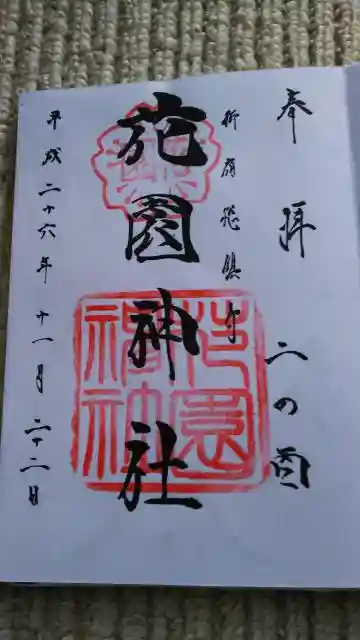 奉拝 二の酉
花園神社
平成二十六年十一月二十二日
花園神社